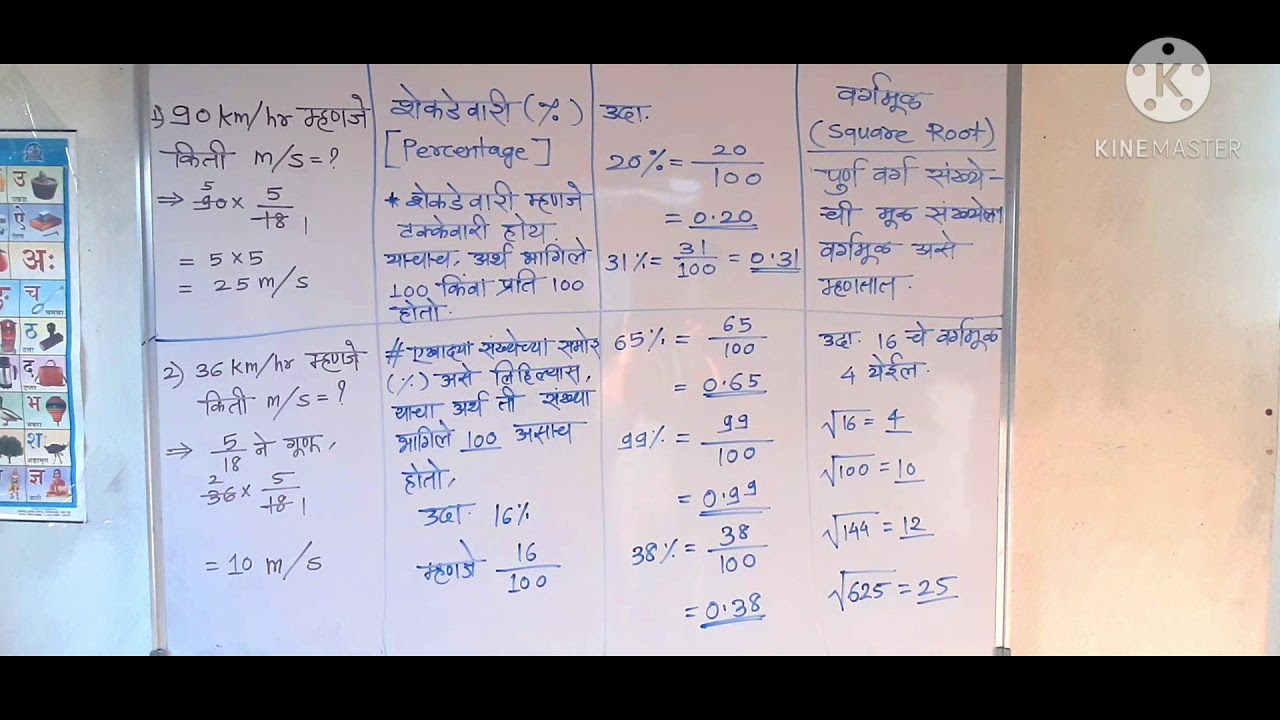 1) 90 km/hr म्हणजे
किती m/s = ?
⇒ 90 5 × 5/18 1
= 5 × 5
= 25 m/s
2) 36 km/hr म्हणजे
किती m/s = ?
⇒ 5/18 ने गूणू,
36 2 × 5/18 1
= 10 m/s
शेकडेवारी (%)
[Percentage]
* शेकडेवारी म्हणजे
टक्केवारी होय.
याचाच, अर्थ भागिले
100 किंवा प्रति 100
होतो.
# एखाद्या संख्येच्या समोर
(%) असे लिहिल्यास,
याचा अर्थ ती संख्या
भागिले 100 असाच
होतो,
उदा. 16%
म्हणजे 16/100
उदा.
20% = 20/100
= 0.20
31% = 31/100 = 0.31
65% = 65/100
= 0.65
99% = 99/100
= 0.99
38% = 38/100
= 0.38
वर्गमूळ
(Square Root)
पुर्ण वर्ग संख्ये-
ची मूळ संख्येला
वर्गमूळ असे
म्हणतात.
उदा. 16 चे वर्गमूळ
4 येईल.
√16 = 4
√100 = 10
√144 = 12
√625 = 25
K
KINEMASTER
उ
ऐ
अः
च
ठ
द
भ
श
ज्ञ